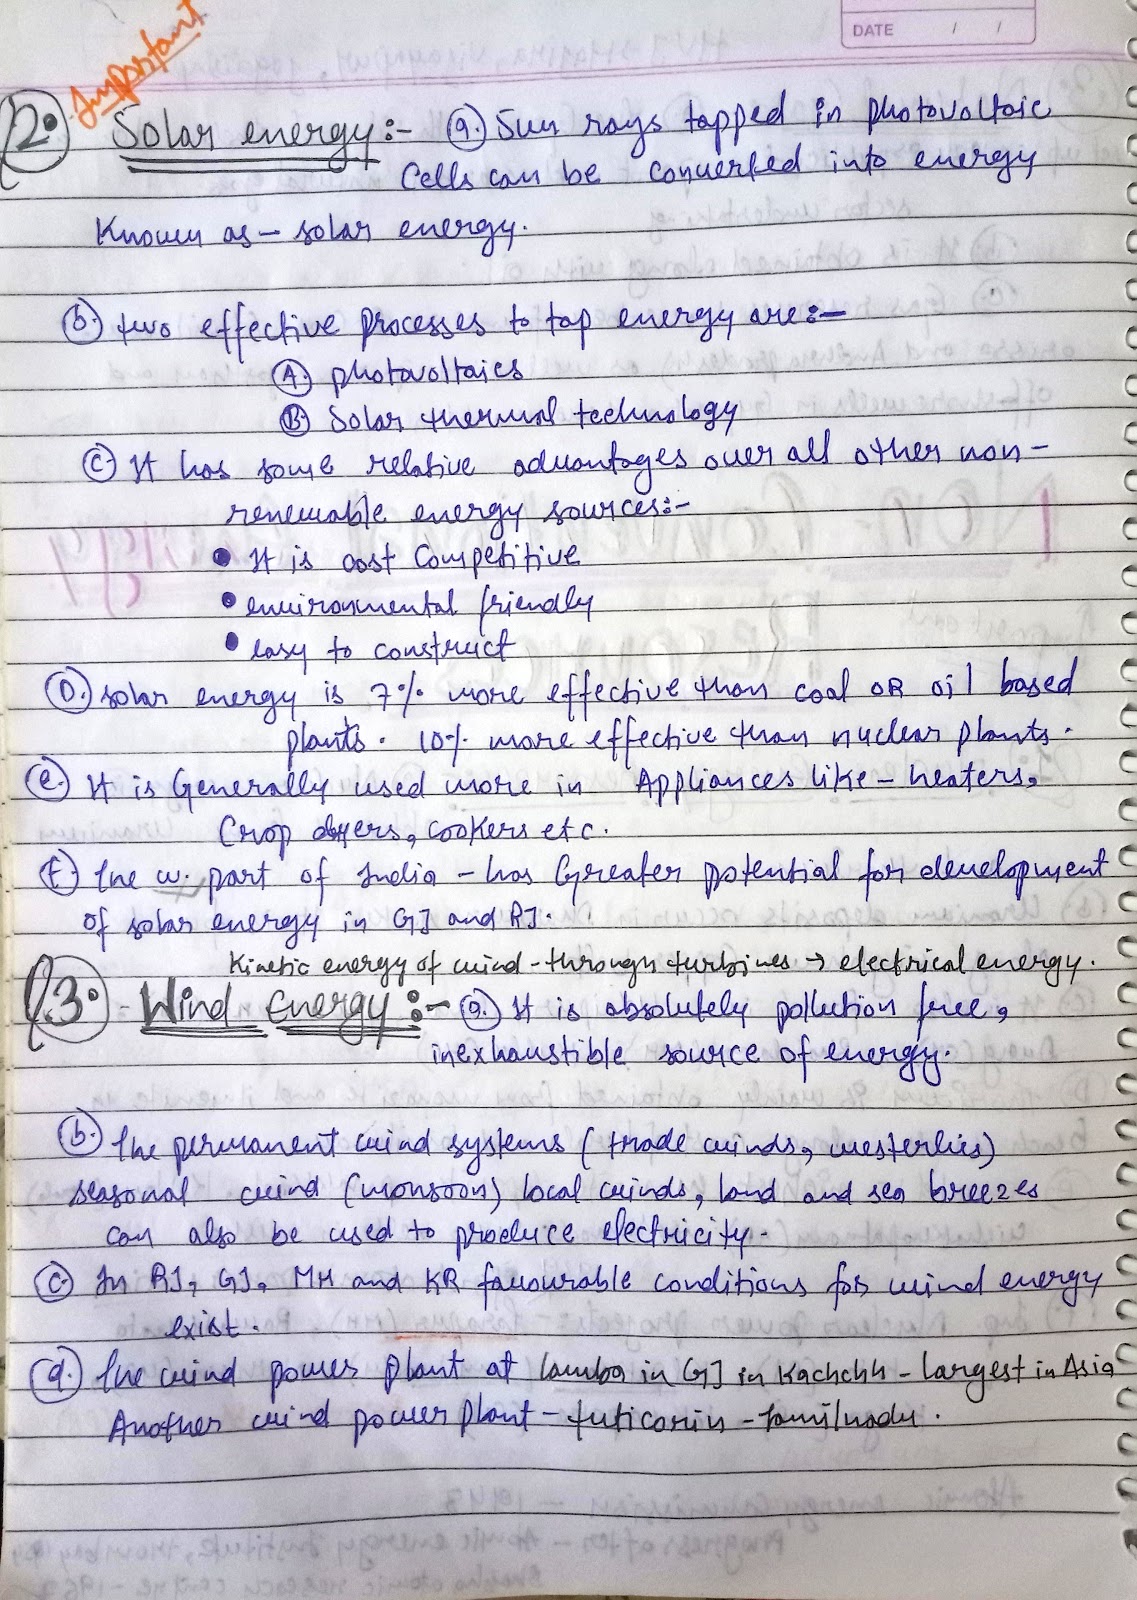 DATE / /
Important
2. Solar energy:- (a.) Sun rays tapped in photovoltaic
Cells can be converted into energy
Known as - solar energy.
(b.) two effective processes to tap energy are:-
(A.) photovoltaics
(B) Solar thermal technology
(C.) It has some relative advantages over all other non-
renewable energy sources:-
• It is cost Competitive
• environmental friendly
• easy to construct
(D.) solar energy is 7% more effective than coal OR oil based
plants. 10% more effective than nuclear plants.
(e.) It is Generally used more in Appliances like - heaters,
Crop dryers, cookers etc.
(f.) The w. part of India - has Greater potential for development
of solar energy in GJ and RJ.
Kinetic energy of wind - through turbines → electrical energy.
3. - Wind Energy:- (a.) It is absolutely pollution free,
inexhaustible source of energy.
(b.) The permanent wind systems (trade winds, westerlies)
seasonal wind (monsoon) local winds, land and sea breezes
can also be used to produce electricity.
(c.) In RJ, GJ, MH and KR favourable conditions for wind energy
exist.
(d.) The wind power plant at lamba in GJ in Kachchh - largest in Asia
Another wind power plant - tuticorin - tamilnadu.